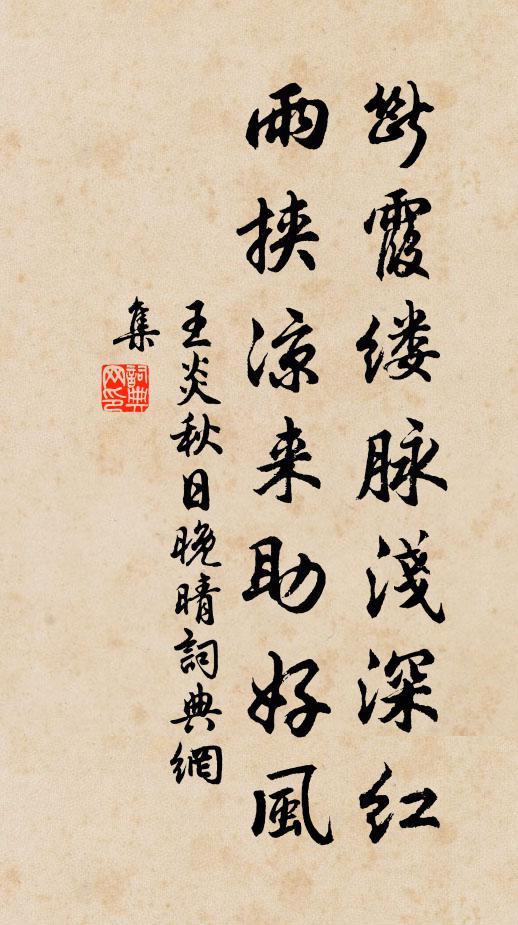 断霞缕脉淺深红
雨挟凉来助好風
王炎秋日晚晴詞典網
集
詞典
网印